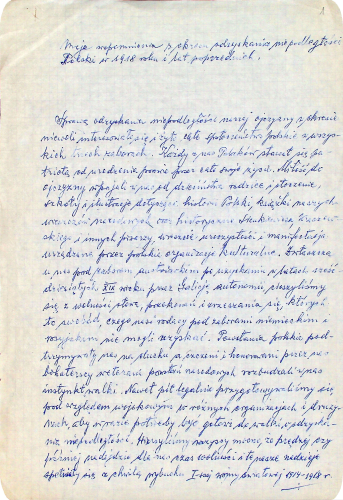 Moje wspomnienia z okresu odzyskania niepodległości
Polski w 1918 roku i lat poprzednich.
Sprawą odzyskania niepodległości naszej ojczyzny z okresu
niewoli interesowało się i żyło całe społeczeństwo polskie we wszyst-
kich trzech zaborach. Każdy z nas Polaków stawał się pa-
triotą od urodzenia prawie przez całe swoje życie. Miłość do
ojczyzny wpajali w nas od dzieciństwa rodzice i starsze,
szkoły i ilustracje dotyczące historii Polski, książki naszych
wieszczów narodowych oraz historyczne Henryka Sienkie-
wicza i innych pisarzy, wreszcie uroczystości i manifestacje
urządzane przez polskie organizacje kulturalne. Zwłaszcza
u nas pod zaborem austriackim po uzyskaniu w latach sześć-
dziesiątych XIX wieku przez Galicję autonomii cieszyliśmy
się z wolności słowa, przekonań i zrzeszania się, których
to swobód, czego nasi rodacy pod zaborami niemieckim i
rosyjskim nie mogli uzyskać. Powstania polskie pod-
trzymywały nas na duchu, a czczeni i honorowani przez nas
bohaterscy weterani powstań narodowych rozbudzali w nas
instynkt walki. Nawet pół legalnie przygotowywaliśmy się
pod względem wojskowym w różnych organizacjach i druży-
nach, aby w razie potrzeby być gotowi do walki o odzyska-
nie niepodległości. Wierzyliśmy wszyscy mocno, że prędzej czy
później nadejdzie dla nas czas wolności a te nasze nadzieje
spełniły się z chwilą wybuchu I-szej wojny światowej 1914-1918 r.